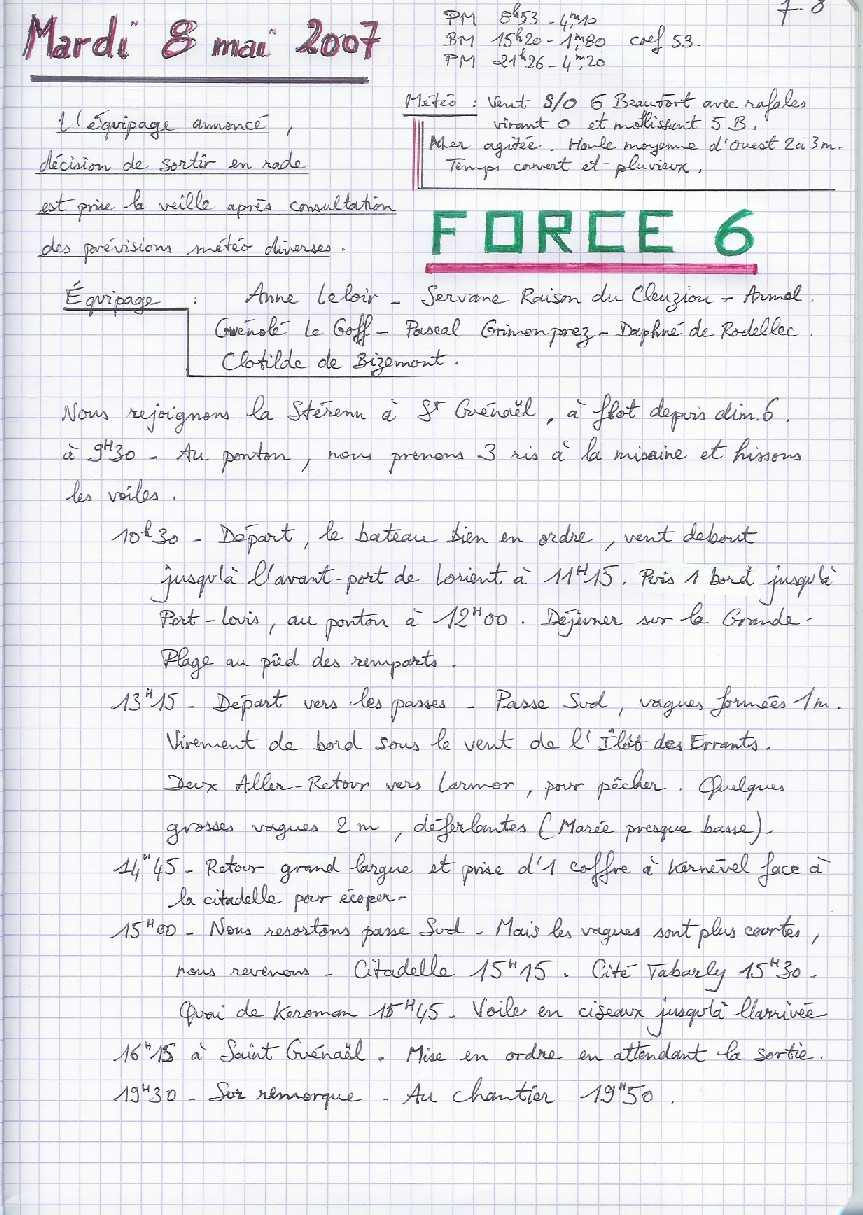 7-8
Mardi 8 mai 2007
PM 8h53 - 4,m10
BM 15h20 - 1,m80 coef 53.
PM 21h26 - 4,m20
Météo : Vent S/O 6 Beaufort avec rafales
virant O et mollissant 5 B.
Mer agitée. Houle moyenne d'Ouest 2 à 3 m.
Temps couvert et pluvieux.
L'équipage annoncé,
décision de sortir en rade
est prise la veille après consultation
des prévisions météo diverses.
FORCE 6
Équipage : Anne Leloir - Servane Raison du Cleuziou - Armel
Gwénolé Le Goff - Pascal Grimonprez - Daphné de Rodellec
Clotilde de Bizemont.
Nous rejoignons la Stérenn à St Guénaël, à flot depuis dim. 6.
à 9H30 - Au ponton, nous prenons 3 ris à la misaine et hissons
les voiles.
10h30 - Départ, le bateau bien en ordre, vent debout
jusqu'à l'avant-port de Lorient à 11H15. Puis 1 bord jusqu'à
Port-Louis, au ponton à 12H00. Déjeuner sur la Grande-
Plage au pied des remparts.
13H15 - Départ vers les passes - Passe Sud, vagues formées 1m.
Virement de bord sous le vent de l'Ilôt des Errants.
Deux Aller-Retour vers Larmor, pour pêcher. Quelques
grosses vagues 2 m, déferlantes (Marée presque basse).
14H45 - Retour grand largue et prise d'1 coffre à Kernével face à
la citadelle pour écoper -
15H00 - Nous resortons passe Sud - Mais les vagues sont plus courtes,
nous revenons - Citadelle 15H15. Cité Tabarly 15H30 -
Quai de Keroman 15H45 - Voile en ciseaux jusqu'à l'arrivée
16H15 à Saint Guénaël. Mise en ordre en attendant la sortie.
19H30 - Sur remorque - Au chantier 19H50.